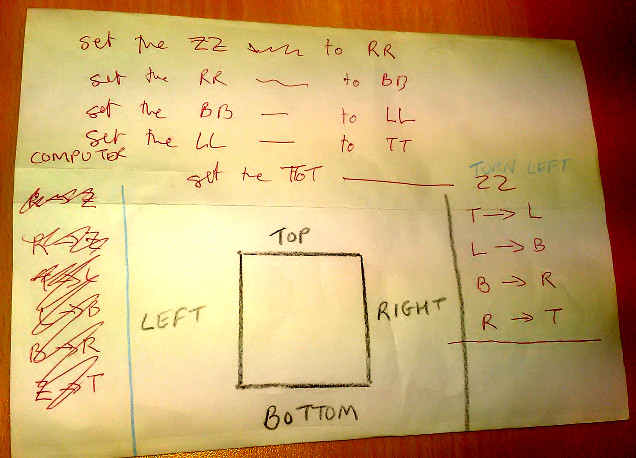 set the ZZ to RR
set the RR — to BB
set the BB — to LL
set the LL — to TT
COMPUTER
set the TT — ZZ
TURN LEFT
T → L
L → B
B → R
R → T
TOP
LEFT
RIGHT
BOTTOM
B → R
Z → T